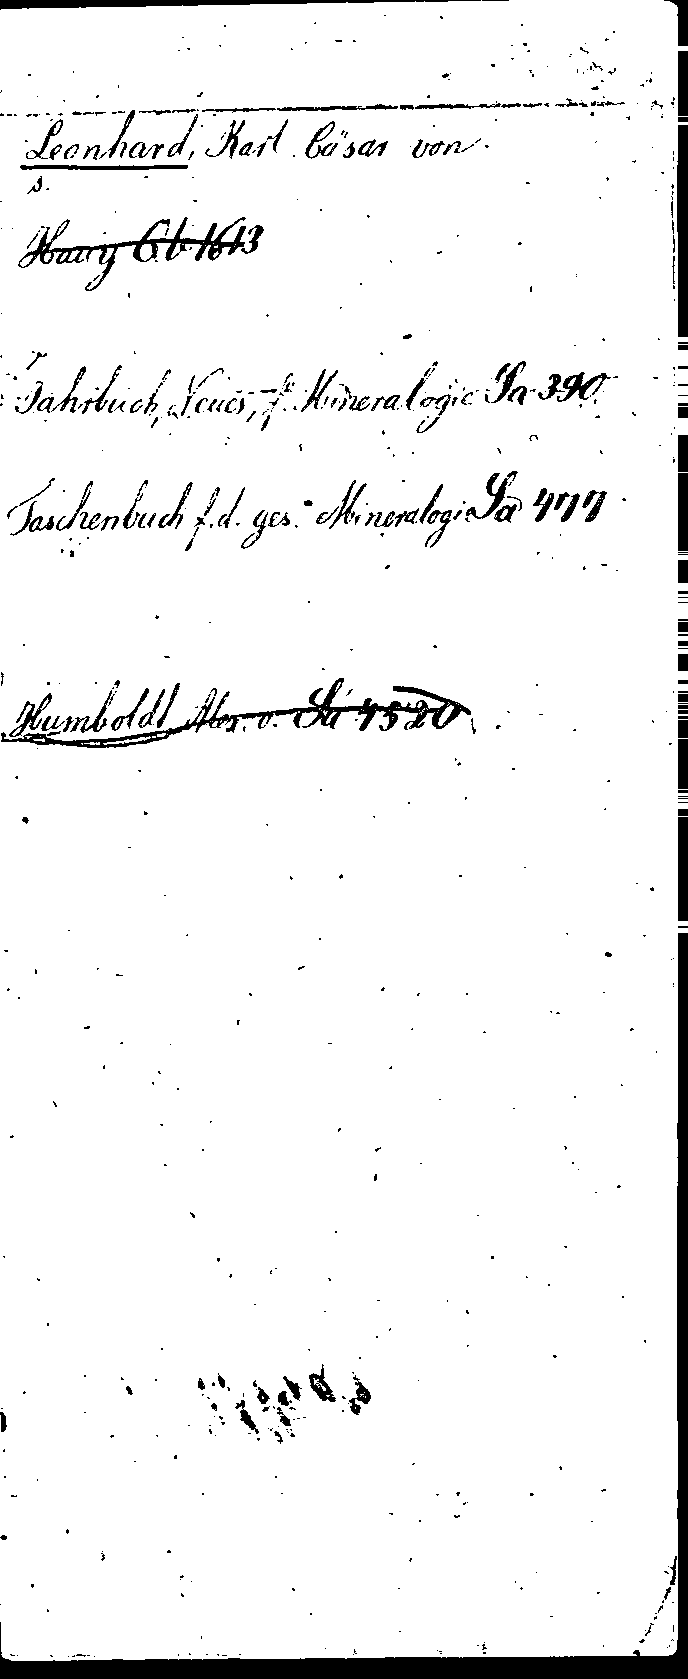 Leonhard, Karl Cäsar von
s.
Hauy Gb 1613
Jahrbuch, Neues, f. Mineralogie Sa 390
Taschenbuch f. d. ges. Mineralogie Sa 477
Humboldt Alex. v. Sa 4520